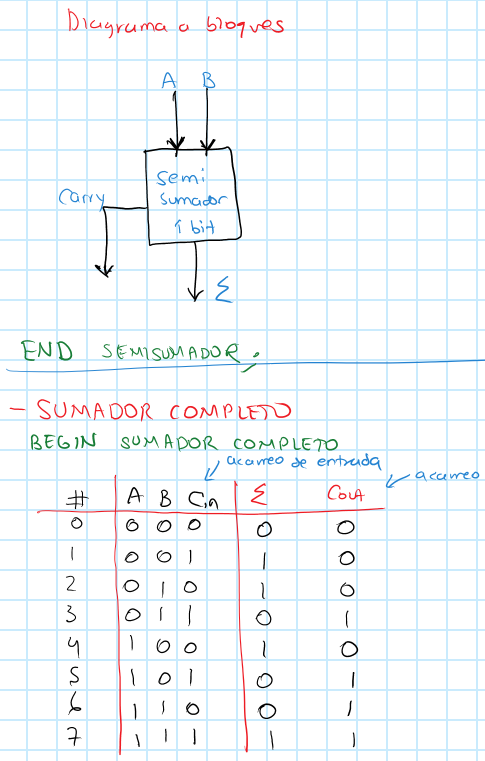 Diagrama a bloques
A B
Semi
sumador
1 bit
Carry
Σ
END SEMISUMADOR;
- SUMADOR COMPLETO
BEGIN SUMADOR COMPLETO
acarreo de entrada
acarreo
# A B Cin Σ Cout
0 0 0 0 0 0
1 0 0 1 1 0
2 0 1 0 1 0
3 0 1 1 0 1
4 1 0 0 1 0
5 1 0 1 0 1
6 1 1 0 0 1
7 1 1 1 1 1